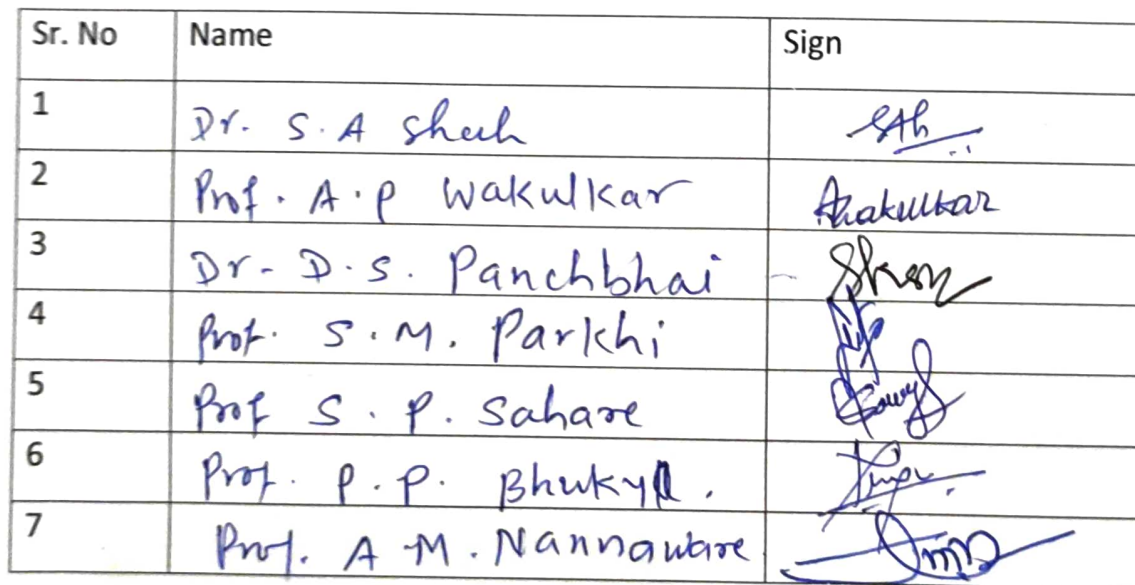 Sr. No Name Sign
1 Dr. S.A Shah
2 Prof. A.P Wakulkar Awakulkar
3 Dr- D.S. Panchbhai
4 Prof. S.M. Parkhi
5 Prof S. P. Sahare
6 Prof. P.P. Bhukya.
7 Prof. A.M. Nannaware